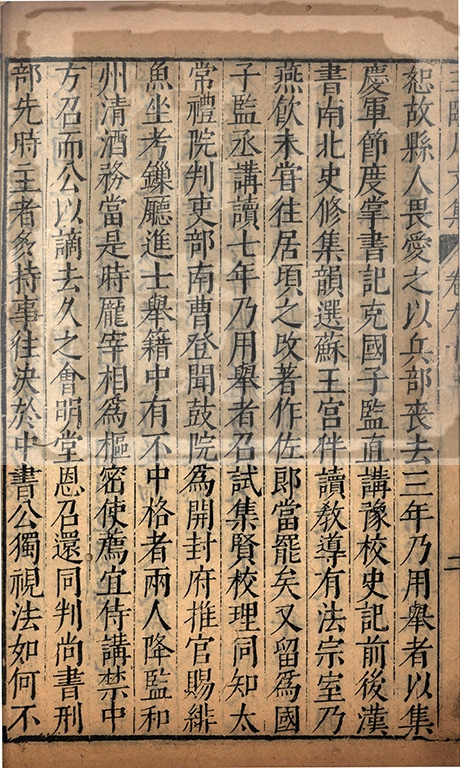 王臨川文集 卷九十 二
恕故縣人畏愛之以兵部喪去三年乃用舉者以集
慶軍節度掌書記克國子監直講豫校史記前後漢
書南北史修集韻選蘇王宮伴讀教導有法宗室乃
燕飲未甞往居頃之改著作佐郎當罷矣又留爲國
子監丞講讀七年乃用舉者召試集賢校理同知太
常禮院判吏部南曹登聞鼓院爲開封府推官賜緋
魚坐考鏁廳進士舉籍中有不中格者兩人降監和
州清酒務當是時龎宰相爲樞密使薦宜侍講禁中
方召而公以謫去久之會明堂恩召還同判尚書刑
部先時王者多持事往決於中書公獨視法如何不